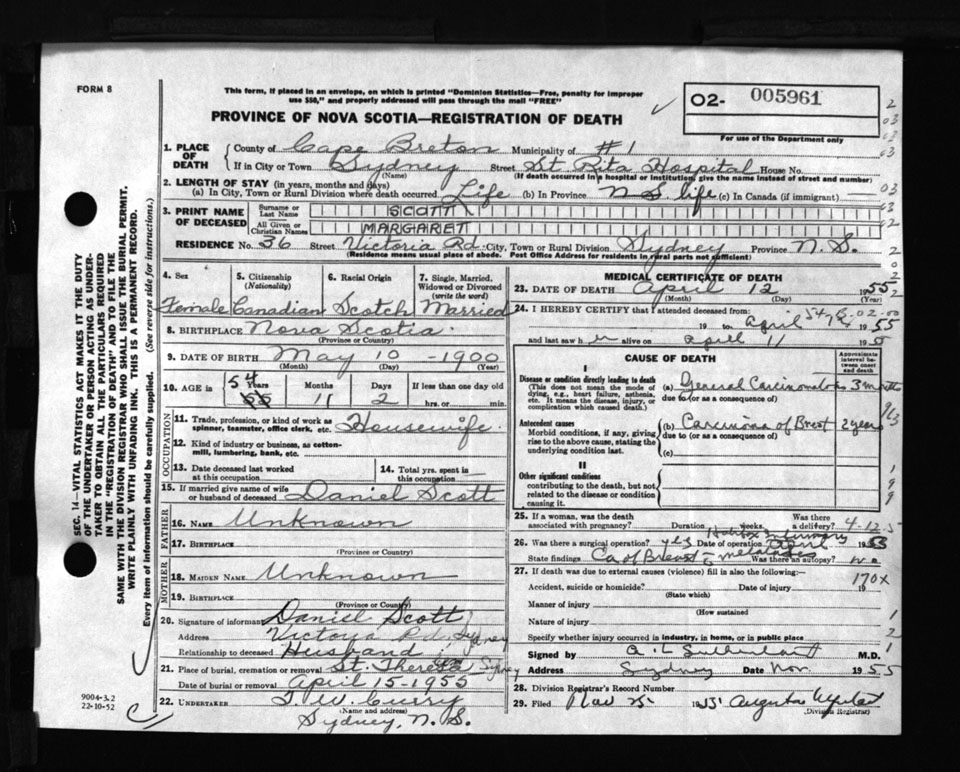 FORM 8
This form, if placed in an envelope, on which is printed "Dominion Statistics—Free, penalty for improper
use $50," and properly addressed will pass through the mail "FREE"
PROVINCE OF NOVA SCOTIA—REGISTRATION OF DEATH
O2- 005961
For use of the Department only
1. PLACE OF DEATH
County of Cape Breton Municipality of #1
If in City or Town Sydney Street St. Rita Hospital House No.
(Name) (If death occurred in a hospital or institution, give the name instead of street and number)
2. LENGTH OF STAY (in years, months and days)
(a) In City, Town or Rural Division where death occurred Life (b) In Province N S life (c) In Canada (if immigrant)
3. PRINT NAME OF DECEASED
Surname or Last Name SCOTT
All Given or Christian Names MARGARET
RESIDENCE No. 36 Street Victoria Rd. City, Town or Rural Division Sydney Province N. S.
(Residence means usual place of abode. Post Office Address for residents in rural parts not sufficient)
4. Sex
Female
5. Citizenship (Nationality)
Canadian
6. Racial Origin
Scotch
7. Single, Married, Widowed or Divorced (write the word)
Married
8. BIRTHPLACE Nova Scotia
(Province or Country)
9. DATE OF BIRTH May 10 -1900
(Month) (Day) (Year)
10. AGE in 54 Years Months 11 Days 2 If less than one day old
hrs. or min.
OCCUPATION
11. Trade, profession, or kind of work as spinner, teamster, office clerk, etc. Housewife
12. Kind of industry or business, as cotton-mill, lumbering, bank, etc.
13. Date deceased last worked at this occupation
14. Total yrs. spent in this occupation
15. If married give name of wife or husband of deceased Daniel Scott
FATHER
16. NAME Unknown
17. BIRTHPLACE
(Province or Country)
MOTHER
18. MAIDEN NAME Unknown
19. BIRTHPLACE
(Province or Country)
20. Signature of informant Daniel Scott
Address Victoria Rd. Sydney
Relationship to deceased Husband
21. Place of burial, cremation or removal St. Theresa Sydney
Date of burial or removal April 15-1955
22. UNDERTAKER T. W. Curry
(Name and address)
Sydney, N. S.
MEDICAL CERTIFICATE OF DEATH
23. DATE OF DEATH April 12 1955
(Month) (Day) (Year)
24. I HEREBY CERTIFY that I attended deceased from:
19 to April 1955
and last saw h er alive on April 11 195
CAUSE OF DEATH
Approximate interval between onset and death
I
Disease or condition directly leading to death
(This does not mean the mode of dying, e.g., heart failure, asthenia, etc. It means the disease, injury, or complication which caused death.)
(a) General Carcinomatosis 3 months
due to (or as a consequence of)
Antecedent causes
Morbid conditions, if any, giving rise to the above cause, stating the underlying condition last.
(b) Carcinoma of Brest 2 years
due to (or as a consequence of)
(c)
II
Other significant conditions
contributing to the death, but not related to the disease or condition causing it.
25. If a woman, was the death associated with pregnancy? Duration weeks. Was there a delivery? 4-12-5
26. Was there a surgical operation? yes Date of operation April 1953
Halifax Infirmary
State findings Ca of Breast metastases Was there an autopsy? no
27. If death was due to external causes (violence) fill in also the following:—
170X
Accident, suicide or homicide? Date of injury 19
(State which)
Manner of injury
(How sustained)
Nature of injury
Specify whether injury occurred in industry, in home, or in public place
Signed by M.D.
Address Sydney Date Nov. 1955
28. Division Registrar's Record Number
29. Filed Nov 25 1955 Augusta
(Division Registrar)
SEC. 14—VITAL STATISTICS ACT MAKES IT THE DUTY
OF THE UNDERTAKER OR PERSON ACTING AS UNDER-
TAKER TO OBTAIN ALL THE PARTICULARS REQUIRED
IN THE "REGISTRATION OF DEATH" AND TO FILE THE
SAME WITH THE DIVISION REGISTRAR WHO SHALL ISSUE THE BURIAL PERMIT.
WRITE PLAINLY WITH UNFADING INK. THIS IS A PERMANENT RECORD.
Every item of information should be carefully supplied. (See reverse side for instructions.)
9004-3.2
22-10-52